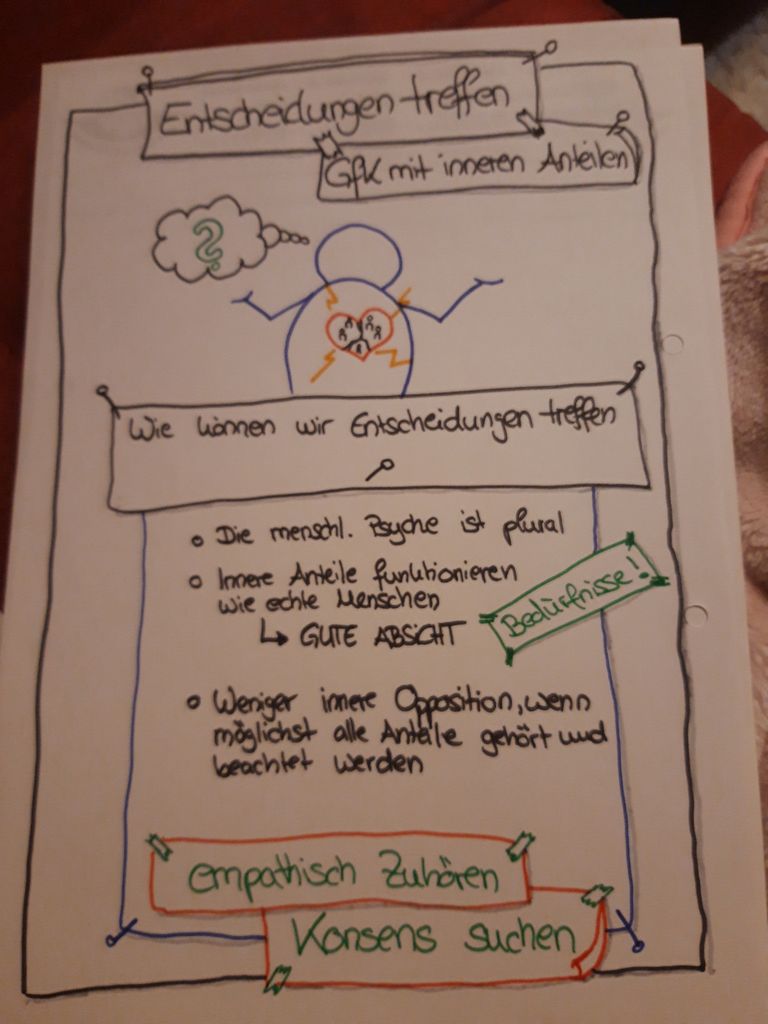 Entscheidungen treffen
GfK mit inneren Anteilen
?
Wie können wir Entscheidungen treffen
Die menschl. Psyche ist plural
Innere Anteile funktionieren
wie echte Menschen
↳ GUTE ABSICHT
Bedürfnisse!
Weniger innere Opposition, wenn
möglichst alle Anteile gehört und
beachtet werden
empathisch Zuhören
Konsens suchen